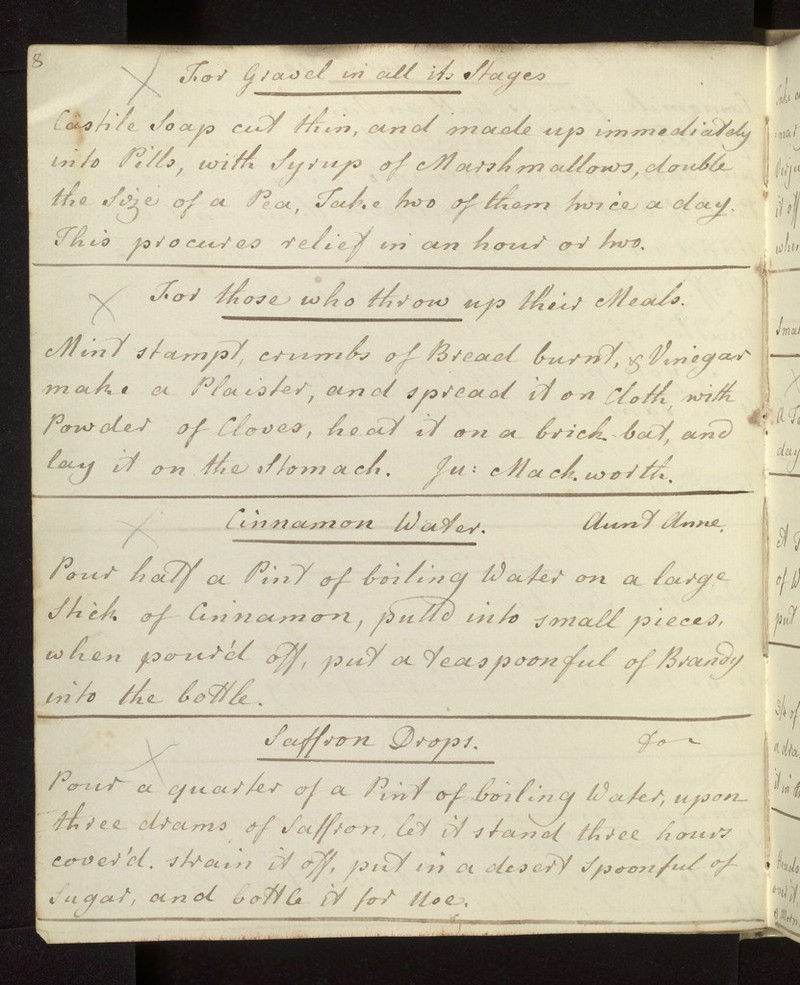 8
For Gravel in all its Stages
Castile Soap cut thin, and made up immediately
into Pills, with Syrup of Marshmallows, double
the Size of a Pea, Take two of them twice a day.
This procures relief in an hour or two.
For those who throw up their Meals.
Mint stampt, crumbs of Bread burnt, & Vinegar
make a Plaister, and spread it on Cloth, with
Powder of Cloves, heat it on a brick-bat, and
lay it on the Stomach. Ju: Mackworth.
Cinnamon Water. Aunt Anne.
Pour half a Pint of boiling Water on a large
Stick of Cinnamon, pull'd into small pieces,
when pour'd off, put a teaspoonful of Brandy
into the bottle.
Saffron Drops. Do
Pour a quarter of a Pint of boiling Water, upon
three drams of Saffron, let it stand three hours
cover'd. strain it off, put in a desert Spoonful of
Sugar, and bottle it for Use.